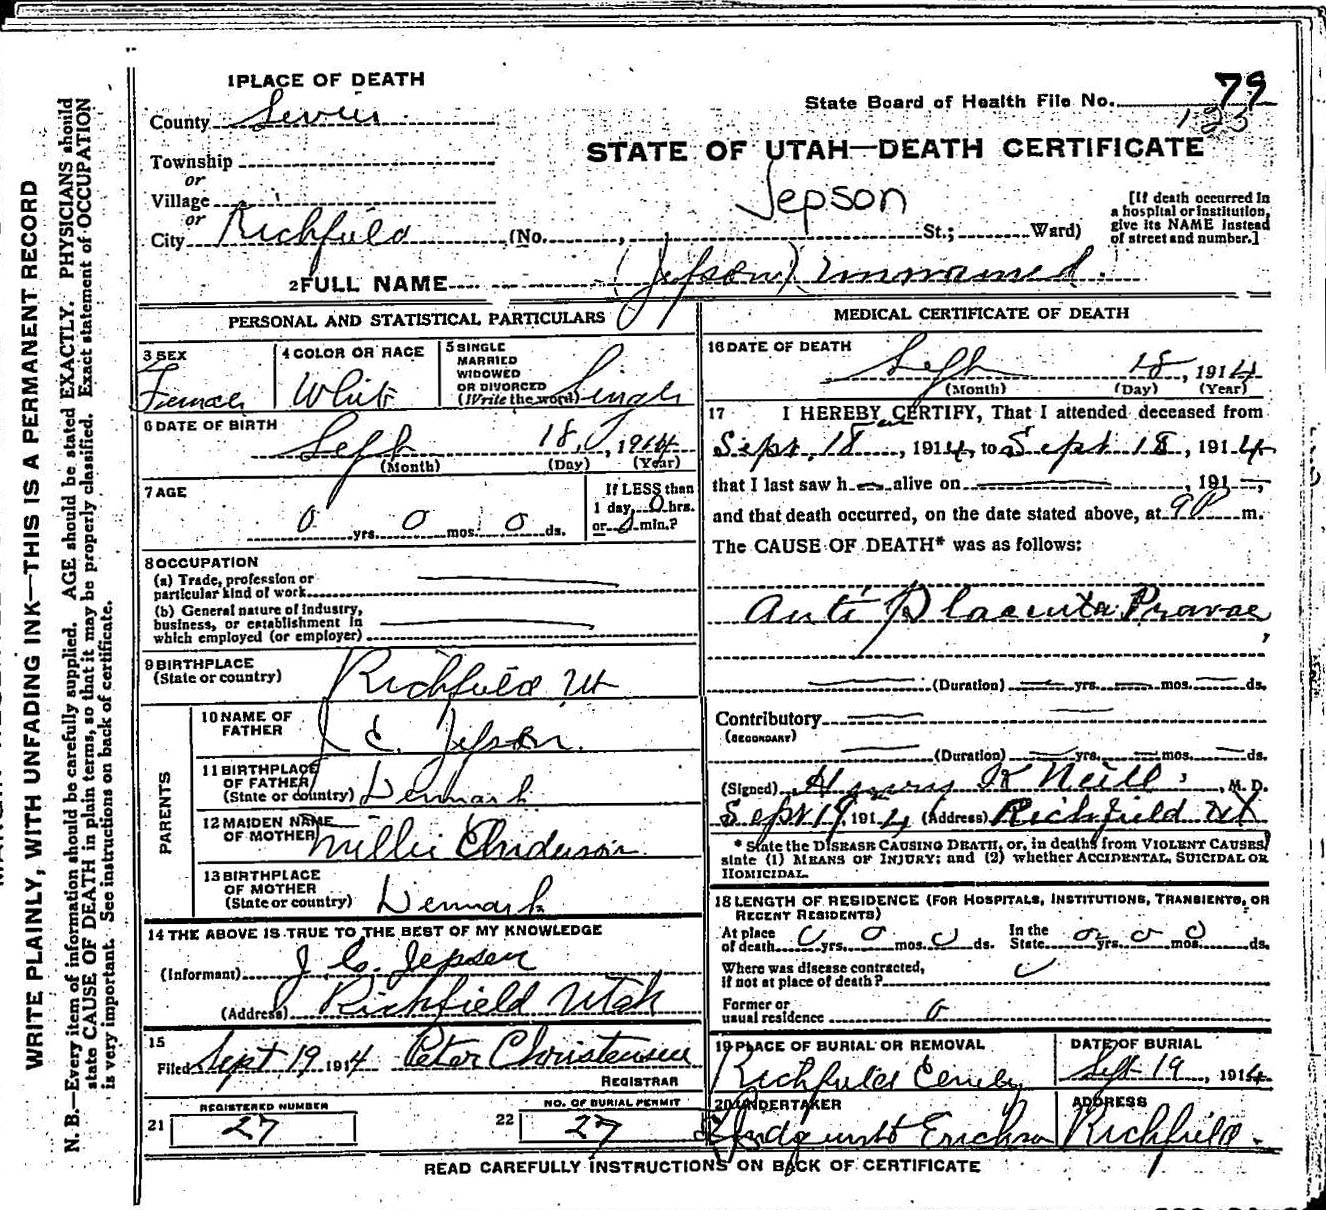 1 PLACE OF DEATH
State Board of Health File No. 79
123
County Sevier
STATE OF UTAH—DEATH CERTIFICATE
Township
or
Village
Jepson
or
City Richfield (No. , St.; Ward)
[If death occurred in
a hospital or institution,
give its NAME instead
of street and number.]
2 FULL NAME (Jepson) Unnamed.
PERSONAL AND STATISTICAL PARTICULARS
3 SEX
Female
4 COLOR OR RACE
White
5 SINGLE
MARRIED
WIDOWED
OR DIVORCED
(Write the word) Single
6 DATE OF BIRTH
Sept 18, 1914
(Month) (Day) (Year)
7 AGE
0 yrs. 0 mos. 0 ds.
If LESS than
1 day, 0 hrs.
or 0 min.?
8 OCCUPATION
(a) Trade, profession or
particular kind of work
(b) General nature of industry,
business, or establishment in
which employed (or employer)
9 BIRTHPLACE
(State or country) Richfield Ut
PARENTS
10 NAME OF
FATHER J C. Jepson.
11 BIRTHPLACE
OF FATHER
(State or country) Denmark
12 MAIDEN NAME
OF MOTHER Millie Anderson
13 BIRTHPLACE
OF MOTHER
(State or country) Denmark
14 THE ABOVE IS TRUE TO THE BEST OF MY KNOWLEDGE
(Informant) J. C. Jepsen
(Address) Richfield Utah
15
Filed Sept 19 1914 Peter Christensen
REGISTRAR
REGISTERED NUMBER
21 27
NO. OF BURIAL PERMIT
22 27
MEDICAL CERTIFICATE OF DEATH
16 DATE OF DEATH
Sept 18, 1914
(Month) (Day) (Year)
17 I HEREBY CERTIFY, That I attended deceased from
Sept. 18, 1914, to Sept 18, 1914
that I last saw h alive on , 191 ,
and that death occurred, on the date stated above, at 9 P m.
The CAUSE OF DEATH* was as follows:
Anti Placenta Pravae
(Duration) yrs. mos. ds.
Contributory
(SECONDARY)
(Duration) yrs. mos. ds.
(Signed) K Neill, M. D.
Sept 19, 1914 (Address) Richfield Ut
* State the DISEASE CAUSING DEATH, or, in deaths from VIOLENT CAUSES,
state (1) MEANS OF INJURY; and (2) whether ACCIDENTAL, SUICIDAL OR
HOMICIDAL.
18 LENGTH OF RESIDENCE (FOR HOSPITALS, INSTITUTIONS, TRANSIENTS, OR
RECENT RESIDENTS)
At place In the
of death 0 yrs. 0 mos. 0 ds. State 0 yrs. 0 mos. 0 ds.
Where was disease contracted,
if not at place of death?
Former or
usual residence 0
19 PLACE OF BURIAL OR REMOVAL
Richfield
DATE OF BURIAL
Sept 19, 1914
20 UNDERTAKER
ADDRESS
Richfield.
READ CAREFULLY INSTRUCTIONS ON BACK OF CERTIFICATE
WRITE PLAINLY, WITH UNFADING INK—THIS IS A PERMANENT RECORD
N. B.—Every item of information should be carefully supplied. AGE should be stated EXACTLY. PHYSICIANS should
state CAUSE OF DEATH in plain terms, so that it may be properly classified. Exact statement of OCCUPATION
is very important. See instructions on back of certificate.